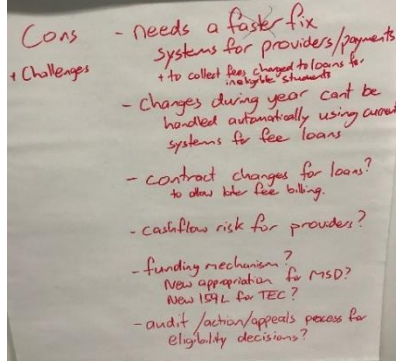 Cons
+ Challenges
- needs a faster fix
systems for providers/payments
+ to collect fees charged to loans for
ineligible students
- changes during year cant be
handled automatically using current
systems for fee loans
- contract changes for loans?
to allow later fee billing.
- cashflow risk for providers?
- funding mechanism?
New appropriation for MSD?
New 159L for TEC?
- audit /action/appeals process for
eligibility decisions?